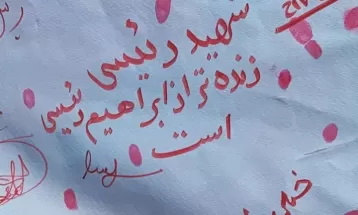 شهید رئیسی
زنده تر از ابراهیم رئیسی
است